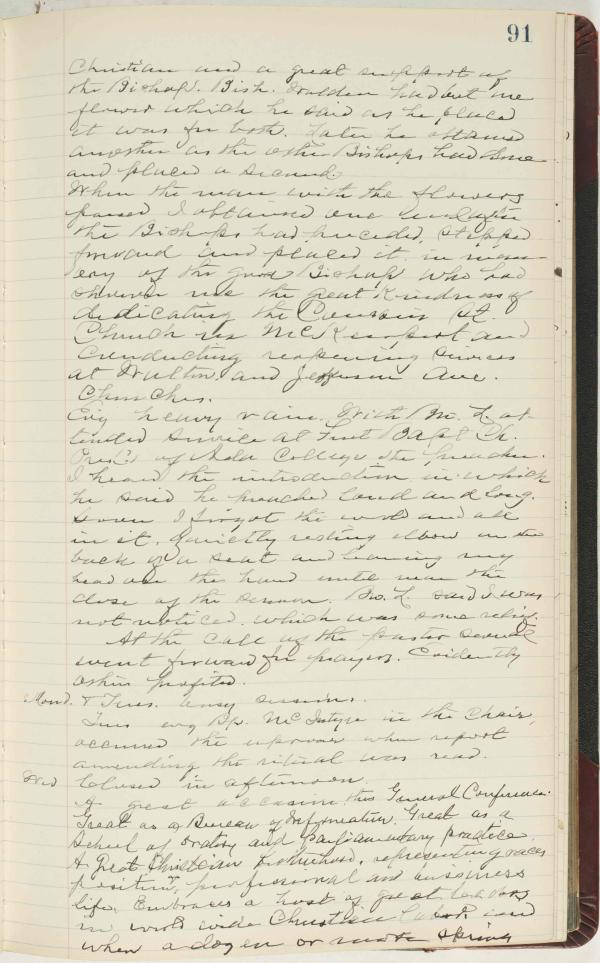 91
Christian and a great support of
the Bishop. Bish. Walden had but one
flower which he said as he placed
it was for both. Later he obtained
another as the other Bishops had done
and placed a second.
When the man with the flowers
passed I obtained one and after
the Bishops had preceded, stepped
forward and placed it in mem-
ory of the good Bishop who had
shown me the great kindness of
dedicating the Cousin St.
Church in McKeesport and
conducting reopening services
at Walton and Jefferson Ave.
Churches.
Evg heavy rain. With Bro. L. at-
tended service at First Bapt Ch.
Pres't of Ada College the preacher.
I heard the introduction in which
he said he preached loud and long.
Soon I forgot the world and all
in it. Quietly resting elbow on the
back of a seat and leaning my
head on the hand until near the
close of the sermon. Bro. L. said I was
not noticed. which was some relief.
At the call of the pastor several
went forward for prayers. Evidently
others profited.
Mond. & Tues. busy sessions.
Tues evg Bp. McIntyre in the Chair,
occurred the uproar when report
amending the ritual was read.
Wed Closed in afternoon.
A great occasion this General Conference.
Great as a Bureau of Information. Great as a
School of Oratory and Parliamentary practice.
A Great Christian Brotherhood, representing races
position, professional and business
life. Embraces a host of great leaders
in world wide Christian labor and
when a dozen or more spring